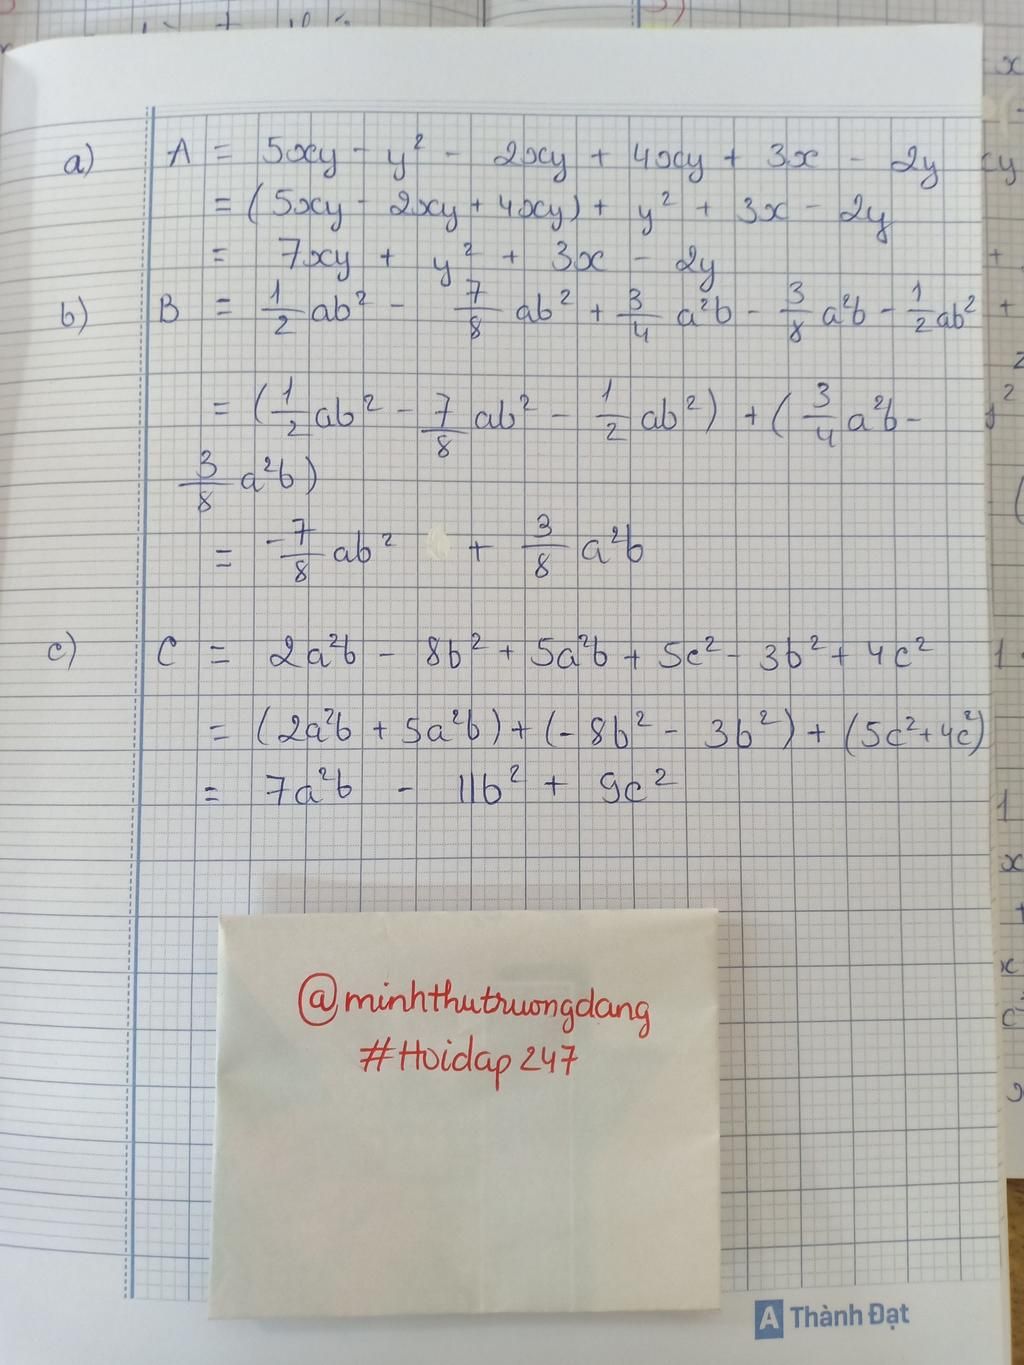 a) A = 5xy - y² - 2xy + 4xy + 3x - 2y
= (5xy - 2xy + 4xy) + y² + 3x - 2y
= 7xy + y² + 3x - 2y
b) B = 1/2 ab² - 7/8 ab² + 3/4 a²b - 3/8 a²b - 1/2 ab²
= (1/2 ab² - 7/8 ab² - 1/2 ab²) + (3/4 a²b -
3/8 a²b)
= -7/8 ab² + 3/8 a²b
c) C = 2a²b - 8b² + 5a²b + 5c² - 3b² + 4c²
= (2a²b + 5a²b) + (-8b² - 3b²) + (5c² + 4c²)
= 7a²b - 11b² + 9c²
@minhthutruongdang
#Hoidap247
A Thành Đạt